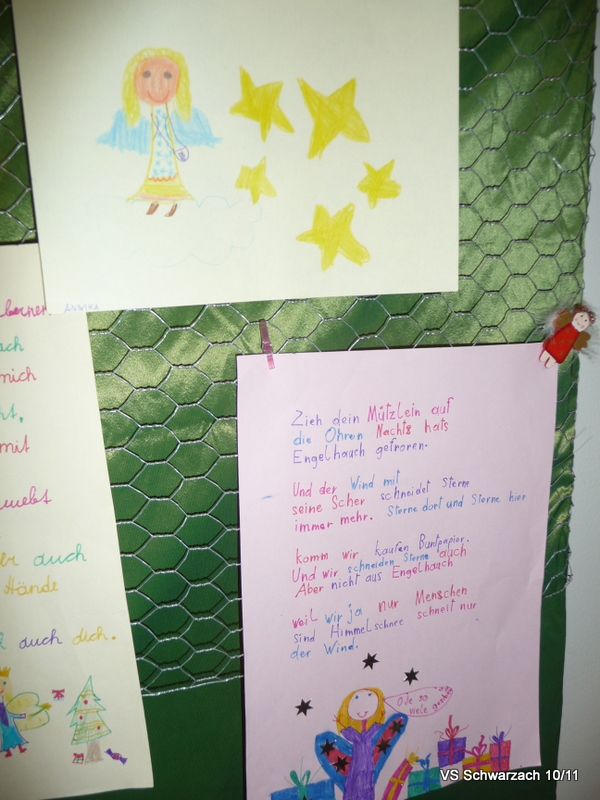 Annika
berner
ach
mich
ht,
mit
webt
er auch
Hände
auch dich.
Zieh dein Mützlein auf
die Ohren Nachts hats
Engelhauch gefroren.
Und der Wind mit
seine Scher schneidet Sterne
immer mehr. Sterne dort und Sterne hier
komm wir kaufen Buntpapier.
Und wir schneiden Sterne auch
Aber nicht aus Engelhauch
weil wir ja nur Menschen
sind Himmelschnee schneit nur
der Wind.
so
viele
VS Schwarzach 10/11